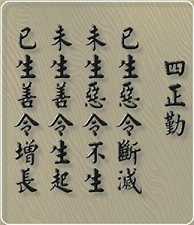 四正勤
已生惡令斷滅
未生惡令不生
未生善令生起
已生善令增長